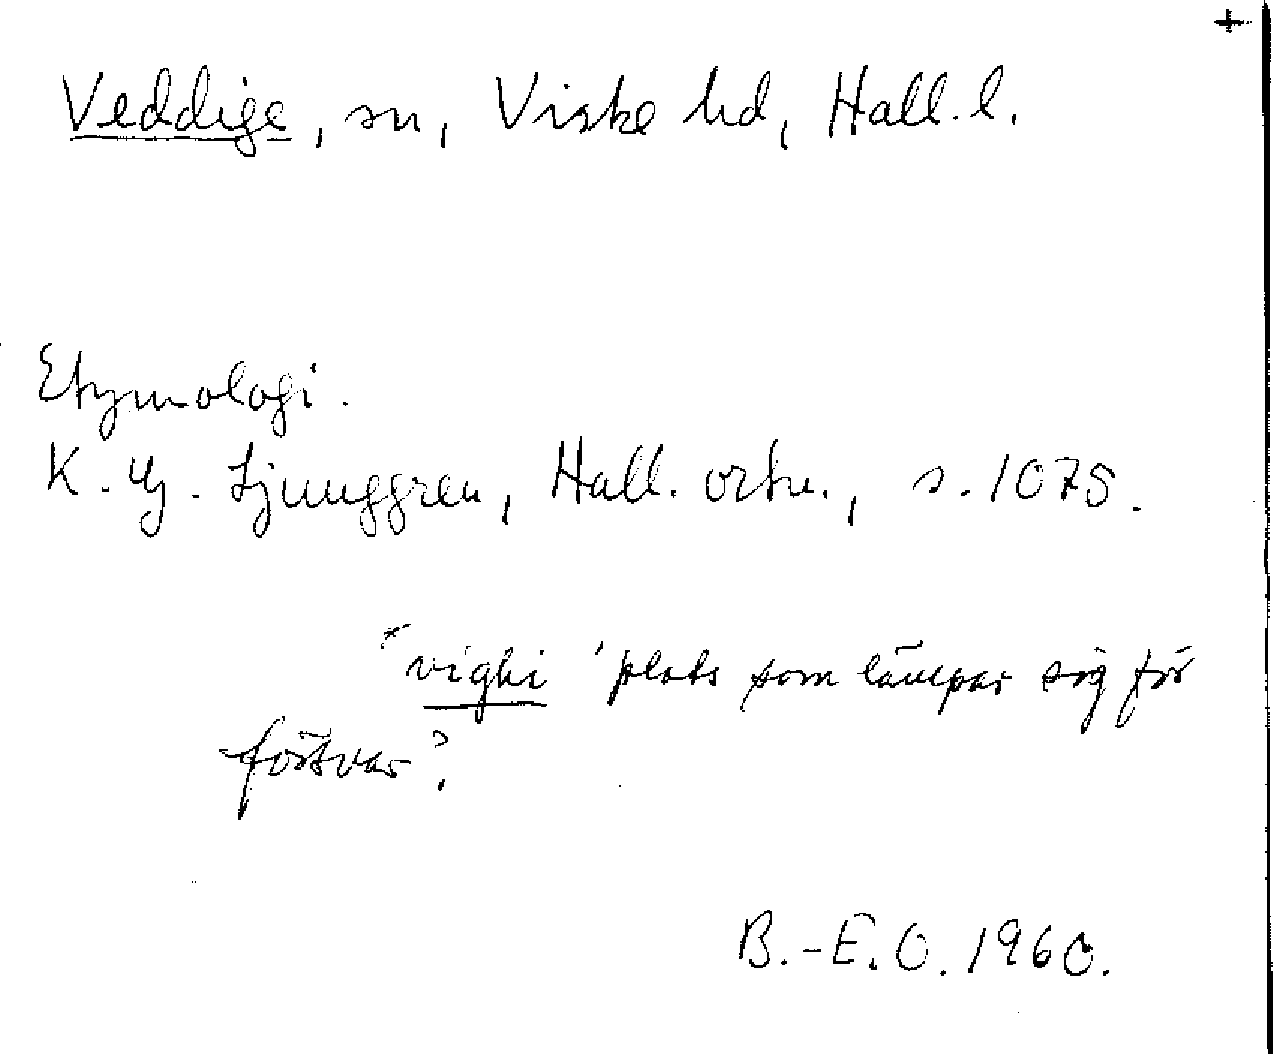 +
Veddige, sn, Viske hd, Hall. l.
Etymologi.
K. G. Ljunggren, Hall. ortn., s. 1075.
*vighi 'plats som lämpar sig för
försvar'.
B.-E.O. 1960.